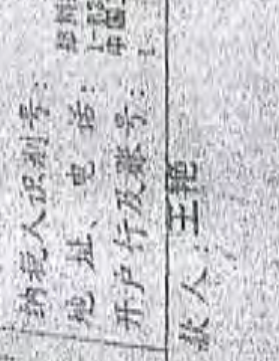 纳税人识别号:
地址、电话:
开户行及账号:
款人: 王艳